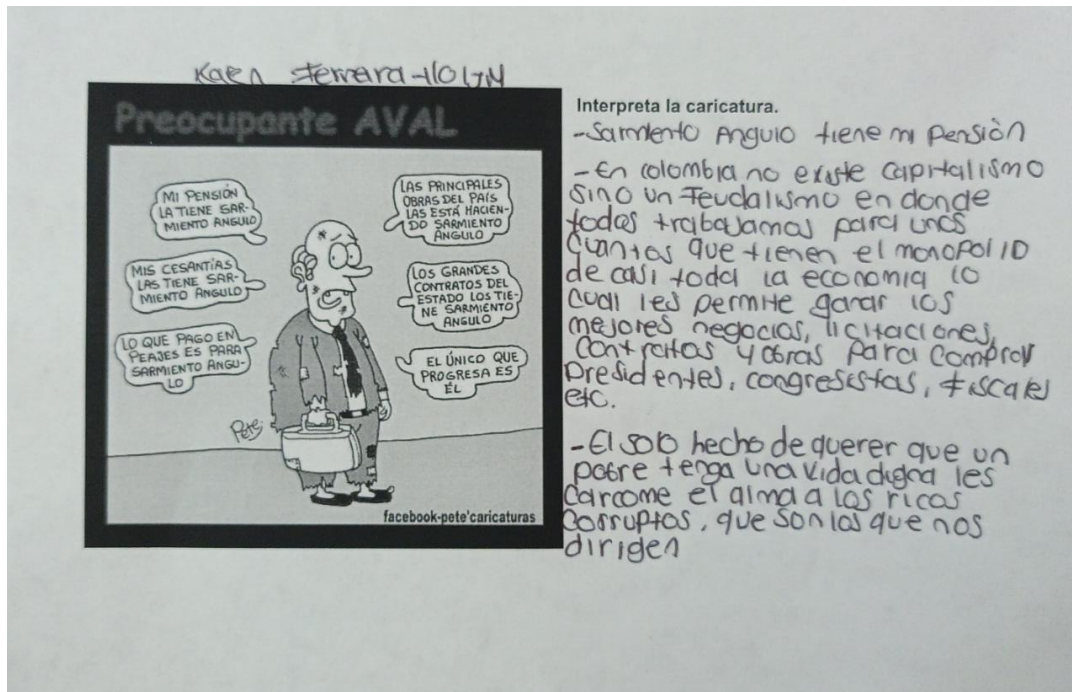 Preocupante AVAL
MI PENSIÓN
LA TIENE SAR-
MIENTO ANGULO
MIS CESANTÍAS
LAS TIENE SAR-
MIENTO ANGULO
LO QUE PAGO EN
PEAJES ES PARA
SARMIENTO ANGU-
LO
LAS PRINCIPALES
OBRAS DEL PAÍS
LAS ESTÁ HACIEN-
DO SARMIENTO
ANGULO
LOS GRANDES
CONTRATOS DEL
ESTADO LOS TIE-
NE SARMIENTO
ANGULO
EL ÚNICO QUE
PROGRESA ES
ÉL
Pete
facebook-pete'caricaturas
Interpreta la caricatura.
-Sarmiento Angulo tiene mi pensión
-En colombia no existe capitalismo
sino un Feudalismo en donde
todos trabajamos para unos
cuantos que tienen el monopolio
de casi toda la economia lo
cual les permite ganar los
mejores negocios, licitaciones,
contratos y obras para comprar
presidentes, congresistas, fiscales
etc.
-El solo hecho de querer que un
pobre tenga una vida digna les
carcome el alma a los ricos
corruptos, que son los que nos
dirigen